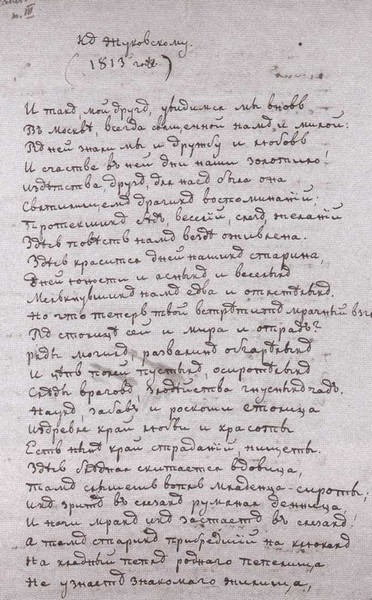 т. III
Къ Жуковскому.
(1813 годъ)
И такъ, мой другъ, увидимся мы вновь
Въ Москвѣ, всегда священной намъ и милой:
Въ ней знали мы и дружбу и любовь
И счастье въ ней дни наши золотило.
Изъ дѣтства, другъ, для насъ была она
Святилищемъ драгихъ воспоминаній;
Протекшихъ бѣдъ, веселій, слезъ, желаній
Здѣсь повѣсть намъ вездѣ оживлена.
Здѣсь красится дней нашихъ старина,
Дней юности и ясныхъ и веселыхъ
Мелькнувшихъ намъ едва и отлетѣлыхъ.
Но что теперь твой встрѣтитъ мрачный взг
Въ столицѣ сей и мира и отрадъ?
Ряды могилъ, развалинъ обгорѣлыхъ
И цѣпь полей пустыхъ, осиротѣлыхъ
Слѣды враговъ злодѣйства гнусныхъ чадъ.
Наукъ, забавъ и роскоши столица
Издревле край любви и красоты
Есть нынѣ край страданій, нищеты.
Здѣсь бѣдная скитается вдовица,
Тамъ слышенъ вопль младенца-сироты;
Ихъ зритъ въ слезахъ румяная денница,
И ночи мракъ ихъ застаетъ въ слезахъ!
А тамъ старикъ прибредшій на клюкахъ
На хладный пепелъ роднаго пепелища,
Не узнаетъ знакомаго жилища,